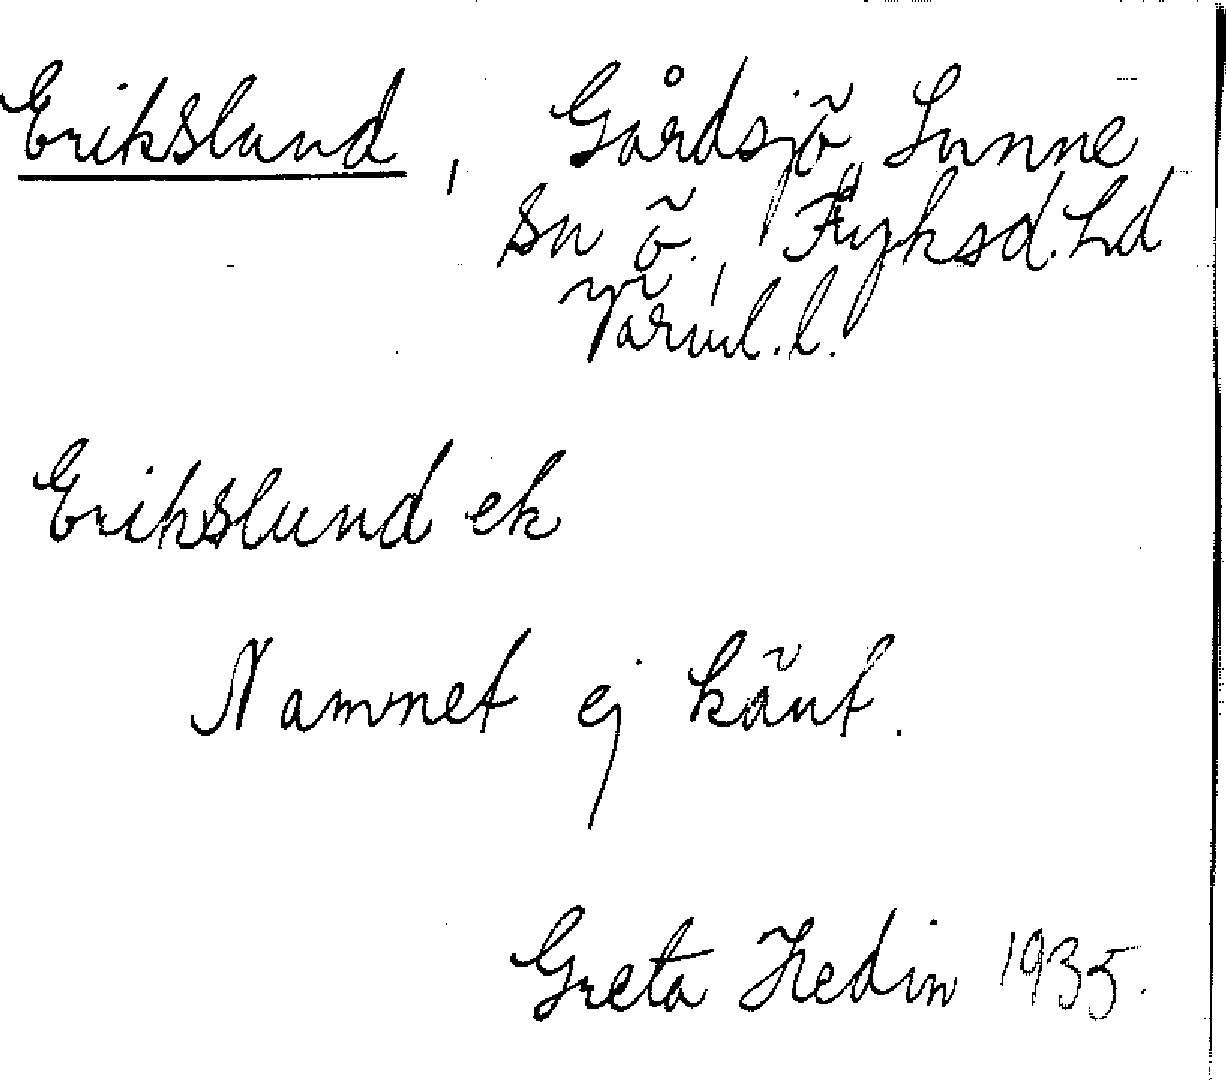 Erikslund, Gårdsjö, Sunne
sn Ö. Fryksd. hd
Värml. l.
Erikslund ek
Namnet ej känt.
Greta Hedin 1935.